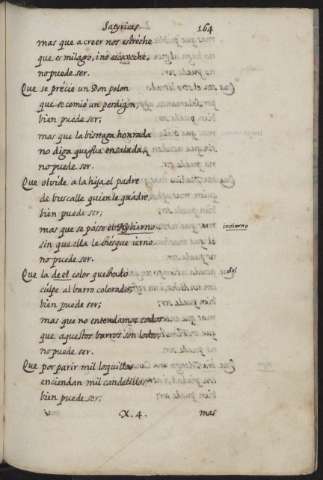 Satyricas. 164
mas que a creer nos estreche
que es milagro, i no escaveche,
no puede ser.
Que se precie un Don pelon
que se comiò un perdigon,
bien puede ser;
mas que la bisnaga honrada
no diga que fue ensalada,
no puede ser.
Que olvide a la hija el padre
de buscalle quien le quadre,
bien puede ser;
mas que se passe el ivierno
invierno
sin que ella le busque ierno
no puede ser.
Que la de el color quebrado
culpe al barro colorado,
bien puede ser;
mas que no entendamos todos
que aquestos barros son lodos
no puede ser.
Que por parir mil loquillas
enciendan mil candelillas,
bien puede ser;
X. 4. mas